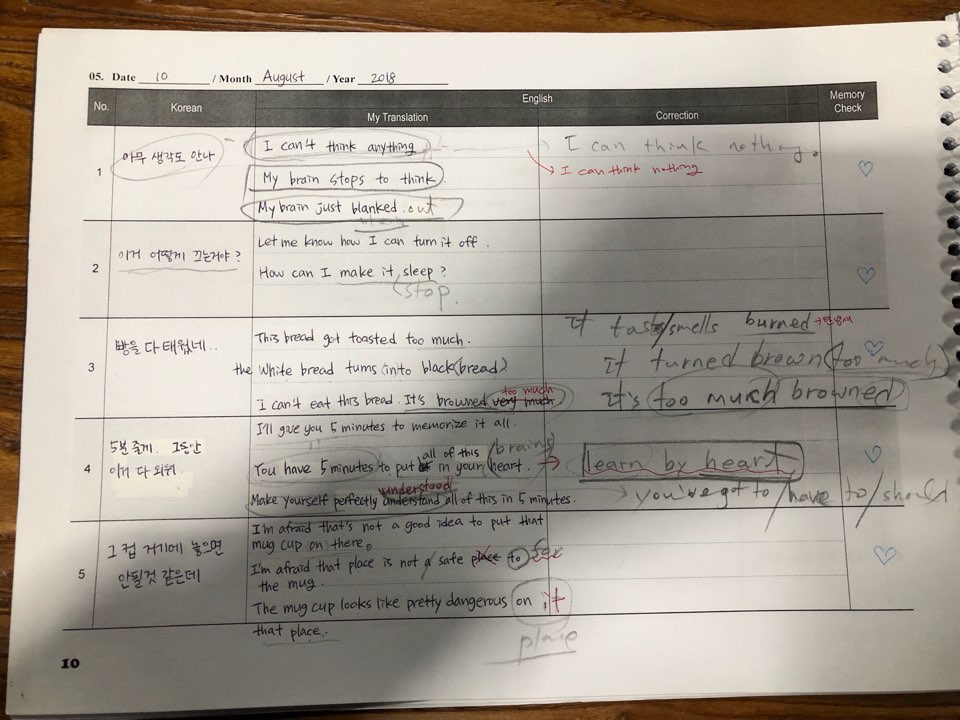 05. Date 10 / Month August / Year 2018
No. Korean English Memory Check
My Translation Correction
1 아무 생각도 안나
I can't think anything.
I can think nothing.
I can think nothing
My brain stops to think
My brain just blanked out
2 이거 어떻게 끄는거야?
Let me know how I can turn it off.
How can I make it sleep?
stop.
3 빵을 다 태웠네..
This bread got toasted too much.
It tasts/smells burned → 탄냄새
the White bread turns into black (bread)
It turned brown (too much)
too much
I can't eat this bread. It's browned very much
It's too much browned
4 5분 줄게. 그동안
이거 다 외워.
I'll give you 5 minutes to memorize it all.
all of this /brains
You have 5 minutes to put in your heart.
learn by heart
understood
Make yourself perfectly understand all of this in 5 minutes.
you've got to / have to / should
5 그 컵 거기에 놓으면
안될것 같은데
I'm afraid that's not a good idea to put that
mug cup on there.
I'm afraid that place is not a safe place to for
the mug.
The mug cup looks like pretty dangerous on it
that place.
place
10